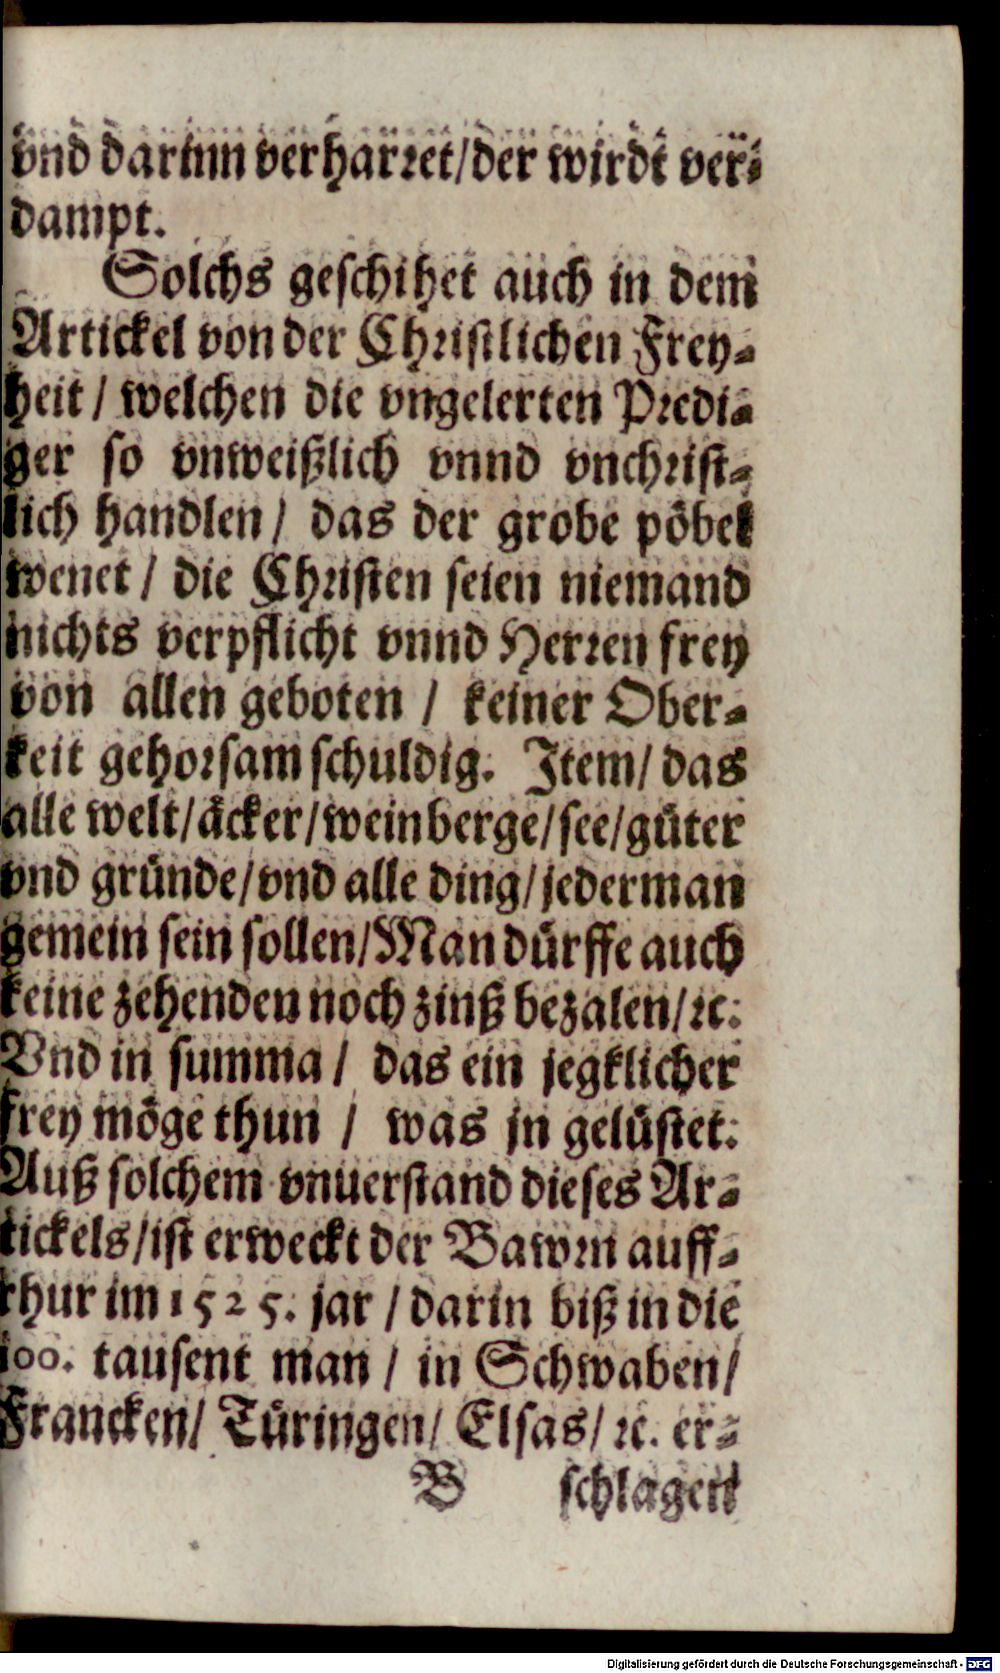 vnd darinn verharret/der wirdt ver-
dampt.
Solchs geschihet auch in dem
Artickel von der Christlichen Frey-
heit / welchen die vngelerten Predi-
ger so vnweißlich vnnd vnchrist-
lich handlen / das der grobe pöbel
wenet / die Christen seien niemand
nichts verpflicht vnnd Herren frey
von allen geboten / keiner Ober-
keit gehorsam schuldig. Item/ das
alle welt/äcker/weinberge/see/güter
vnd gründe/vnd alle ding/jederman
gemein sein sollen/Man dürffe auch
keine zehenden noch zinß bezalen/ꝛc.
Vnd in summa / das ein jegklicher
frey möge thun / was jn gelüstet.
Auß solchem vnuerstand dieses Ar-
tickels/ist erweckt der Bawrn auff-
rhur im 1525. jar / darin biß in die
100. tausent man / in Schwaben/
Francken/ Türingen/ Elsas/ ꝛc. er-
B schlagen
Digitalisierung gefördert durch die Deutsche Forschungsgemeinschaft - DFG